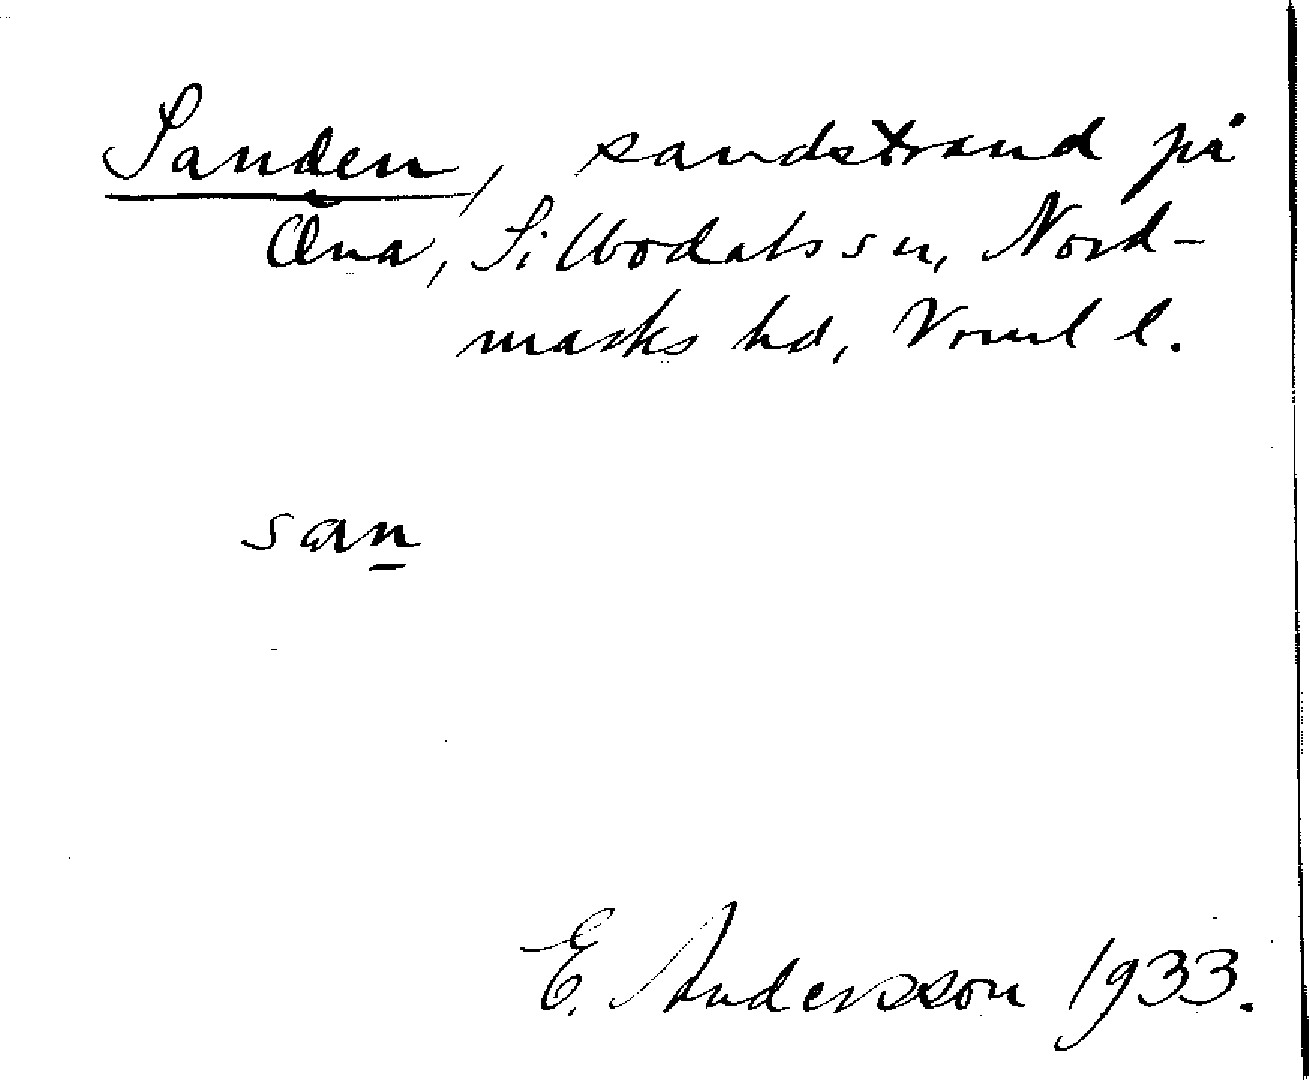 Sanden, sandstrand på
Silbodals sn, Nord-
marks hd, Vrml l.
san
E. Andersson 1933.